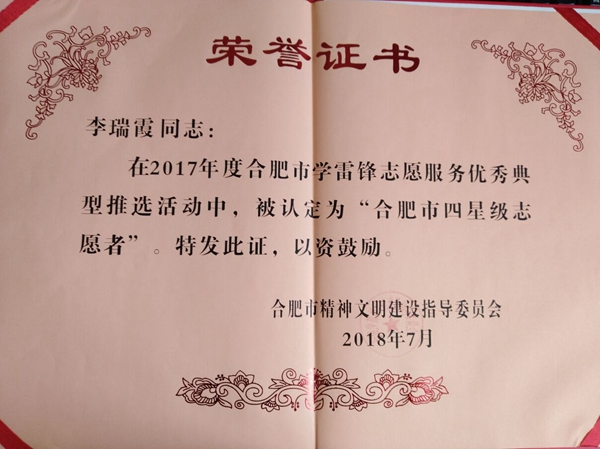 荣誉证书
李瑞霞同志：
在2017年度合肥市学雷锋志愿服务优秀典
型推选活动中，被认定为“合肥市四星级志
愿者”。特发此证，以资鼓励。
合肥市精神文明建设指导委员会
2018年7月